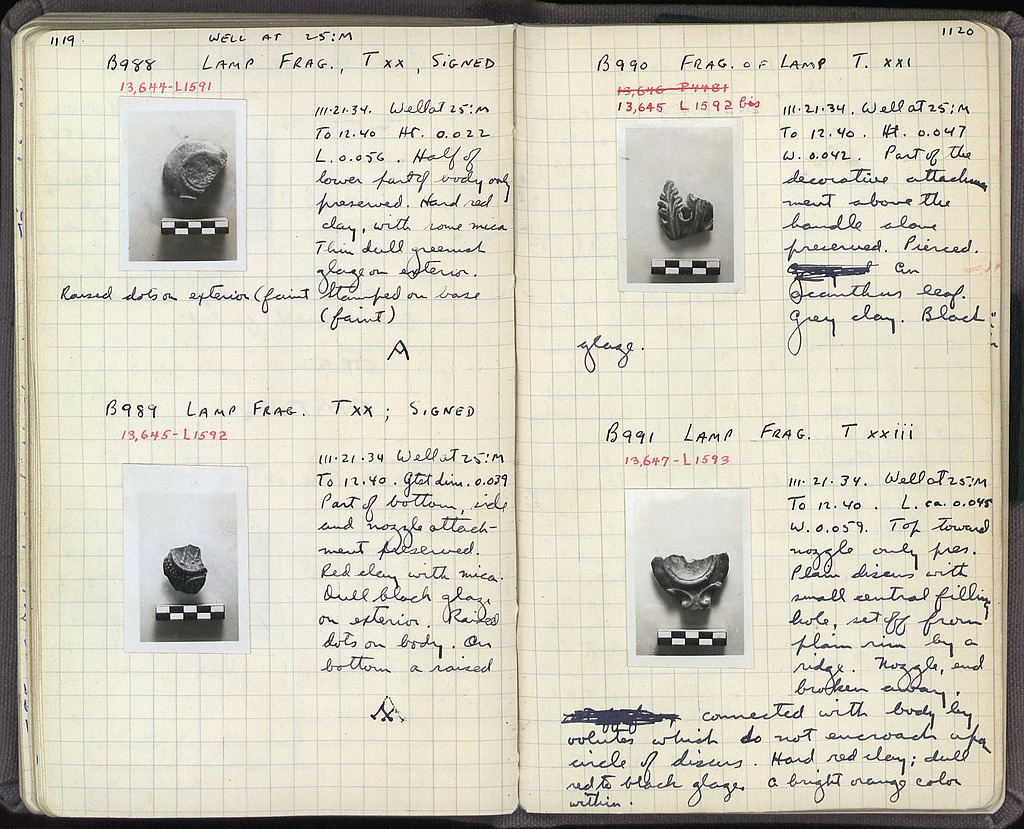 1119
WELL AT 25:M
B988 LAMP FRAG., T XX, SIGNED
13,644-L1591
III.21.34. Well at 25:M
To 12.40 Ht. 0.022
L. 0.056. Half of
lower part of body only
preserved. Hard red
clay, with some mica
Thin dull greenish
glaze on exterior.
Raised dots on exterior (faint Stamped on base
(faint)
A
B989 LAMP FRAG. T XX; SIGNED
13,645-L1592
III.21.34 Well at 25:M
To 12.40. Gtst dim. 0.039
Part of bottom, side
and nozzle attach-
ment preserved.
Red clay with mica.
Dull black glaze
on exterior. Raised
dots on body. On
bottom a raised
A
1120
B990 FRAG. OF LAMP T. XXI
13,646 P4481
13,645 L1592 bis
III.21.34. Well at 25:M
To 12.40. Ht. 0.047
W. 0.042. Part of the
decorative attach
ment above the
handle alone
preserved. Pierced.
An
acanthus leaf.
Grey clay. Black
glaze.
B991 LAMP FRAG. T XXIII
13,647-L1593
III.21.34. Well at 25:M
To 12.40. L. ca. 0.045
W. 0.059. Top toward
nozzle only pres.
Plain discus with
small central filling
hole, set off from
plain rim by a
ridge. Nozzle, end
broken away,
connected with body by
volutes which do not encroach upon
circle of discus. Hard red clay; dull
red to black glaze. a bright orange color
within.